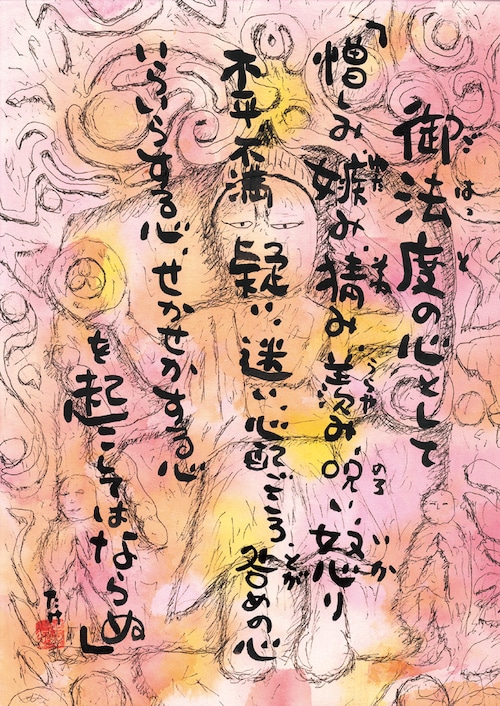 ごはっと
御法度の心として
うらや のろ いか
「憎しみ 嫉み 猜み 羨み 呪い 怒り
とが
不平不満 疑い 迷い 心配ごころ 咎めの心
いらいらする心、せかせかする心
を起こしてはならぬ」